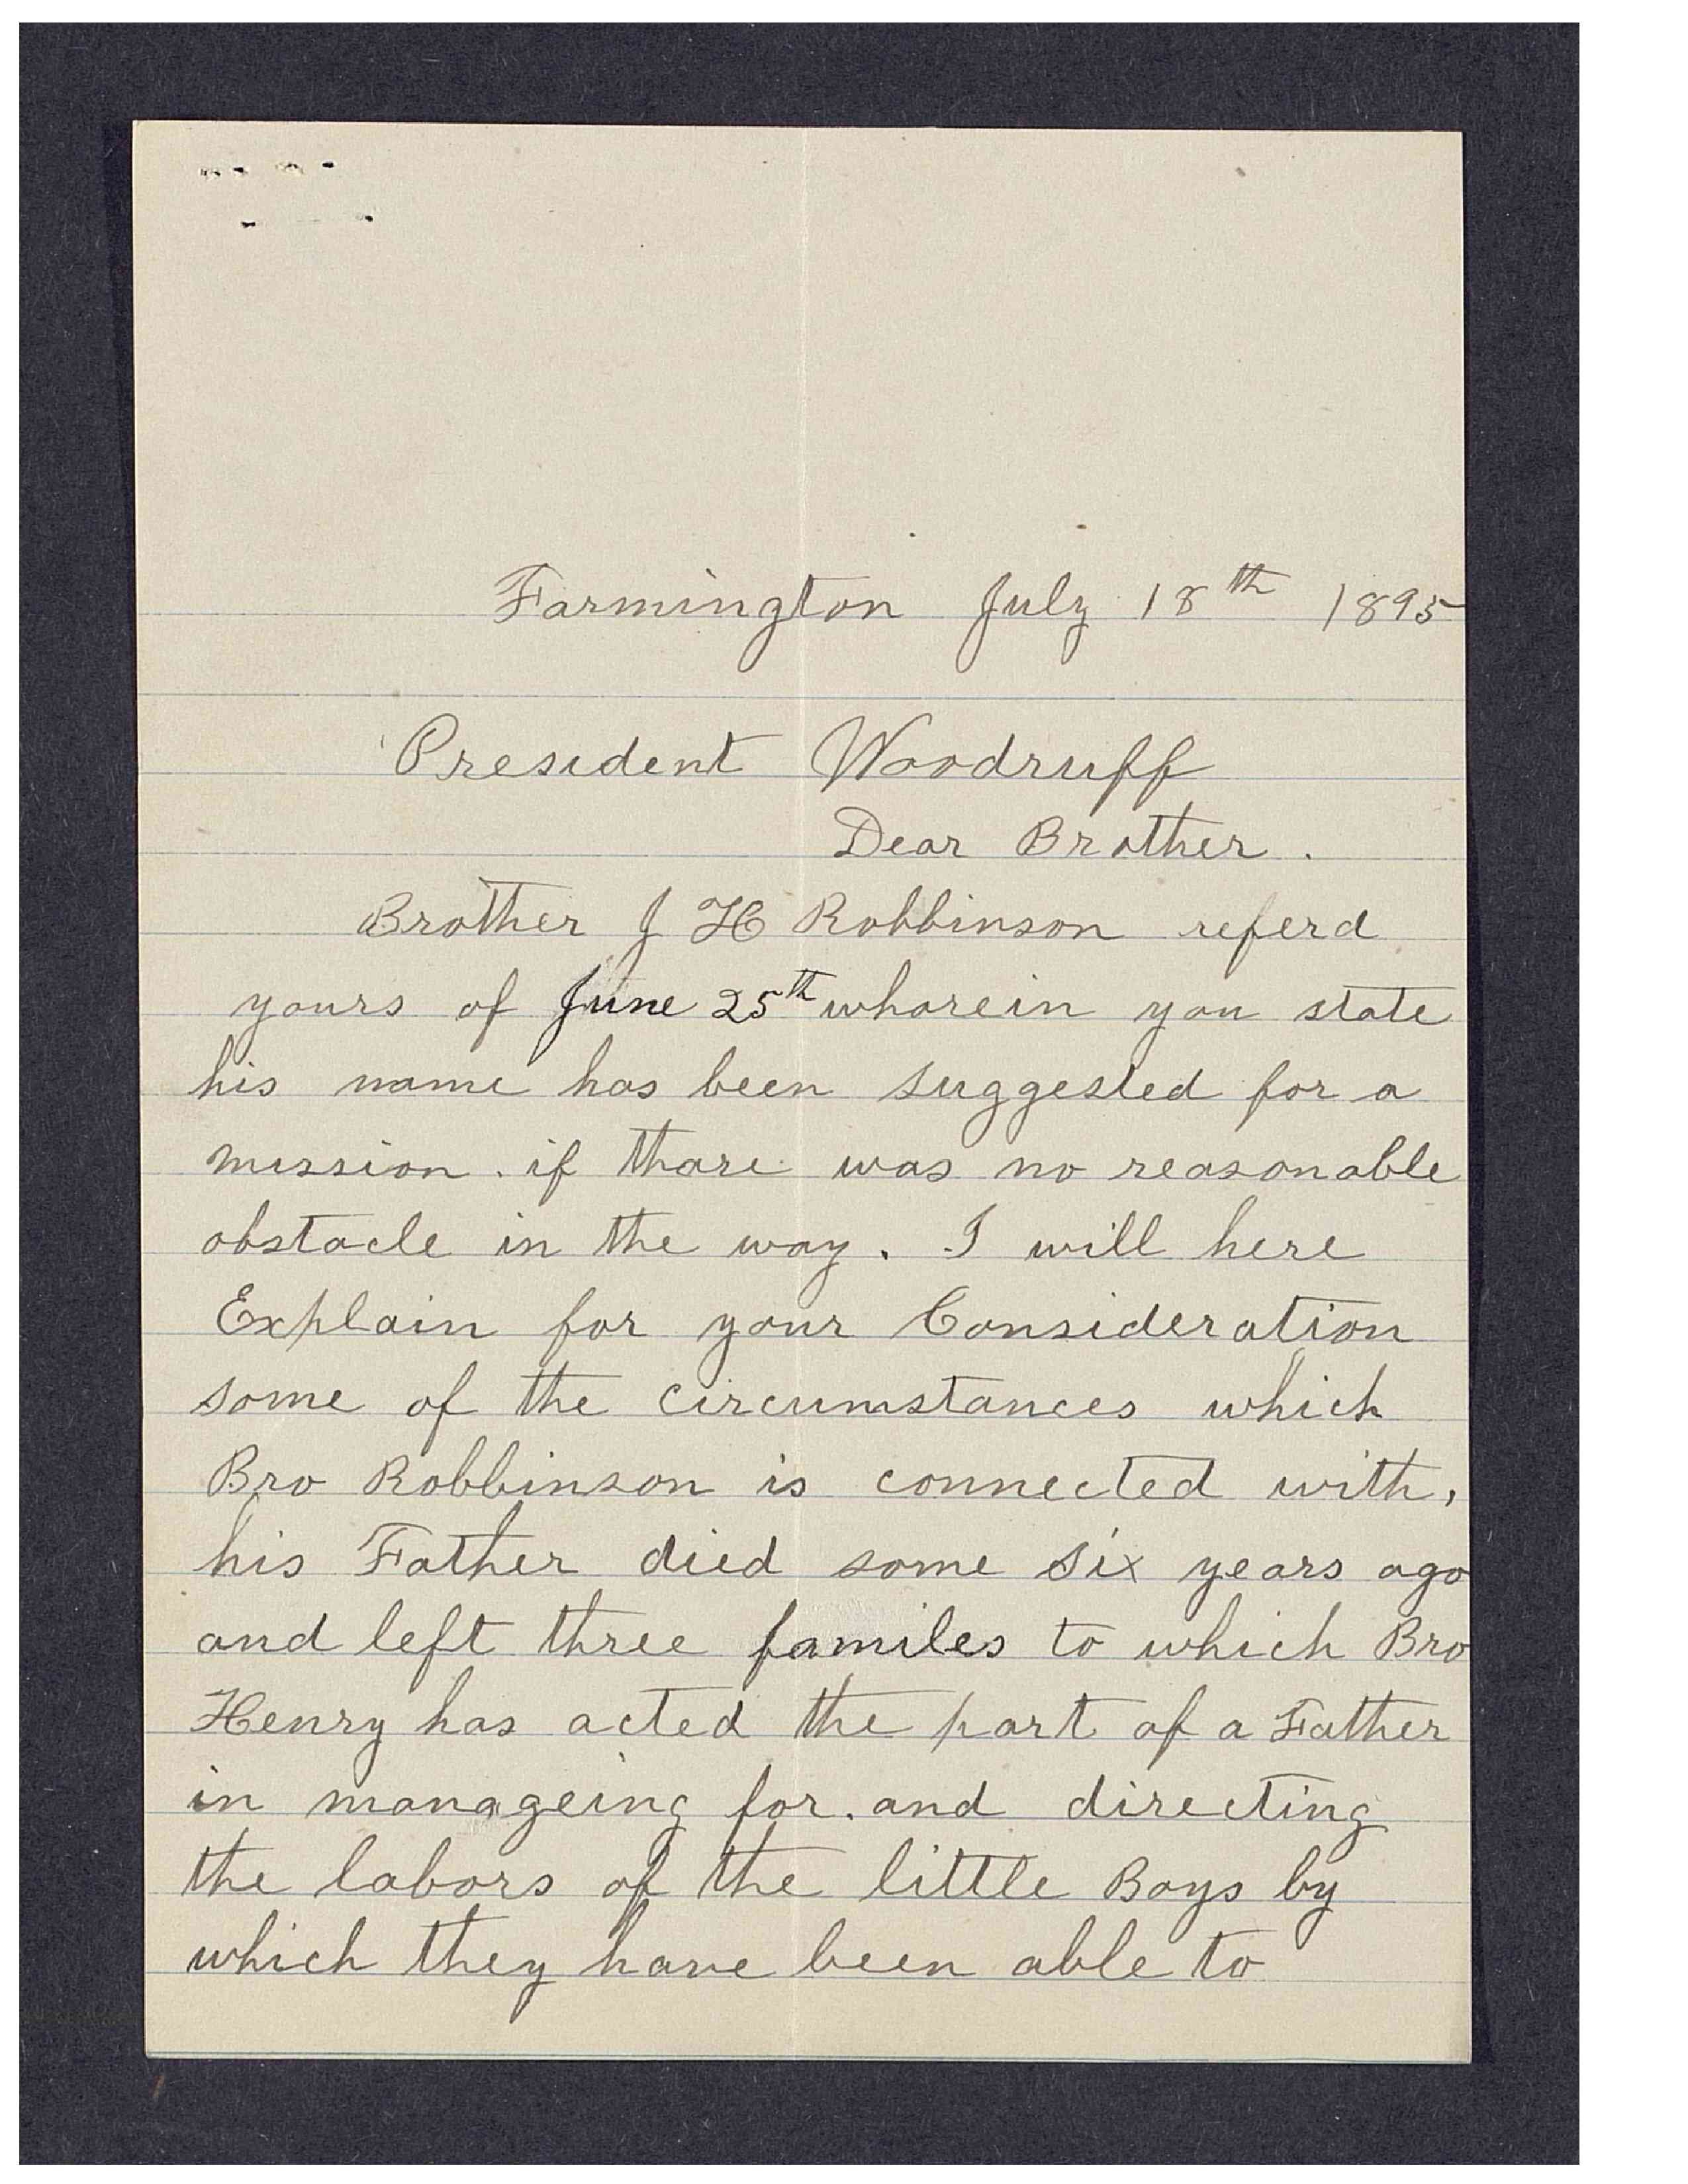 Farmington July 18th 1895
President Woodruff
Dear Brother.
Brother J H Robbinson referd
yours of June 25th wharein you state
his name has been suggested for a
mission. if thare was no reasonable
obstacle in the way. I will here
Explain for your Consideration
some of the circumstances which
Bro Robbinson is connected with,
his Father died some six years ago
and left three familes to which Bro
Henry has acted the part of a Father
in manageing for. and directing
the labors of the little Boys by
which they have been able to